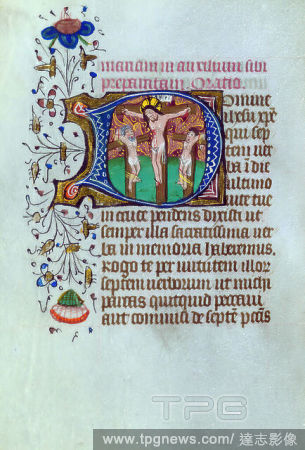 mariam in auxilium sibi
preparatam Oratio
Domine
ihesu xpe
qui sep
tem ver
ba i die
ultimo
vite tue
in cruce pendens dixisti ut
semper illa sacratissima ver
ba in memoria haberemus.
Rogo te per virtutem illor
septem verborum ut michi
parcas quitquid peccavi
aut commisi de septe pctis
TPG
www.tpgnews.com/ 達志影像